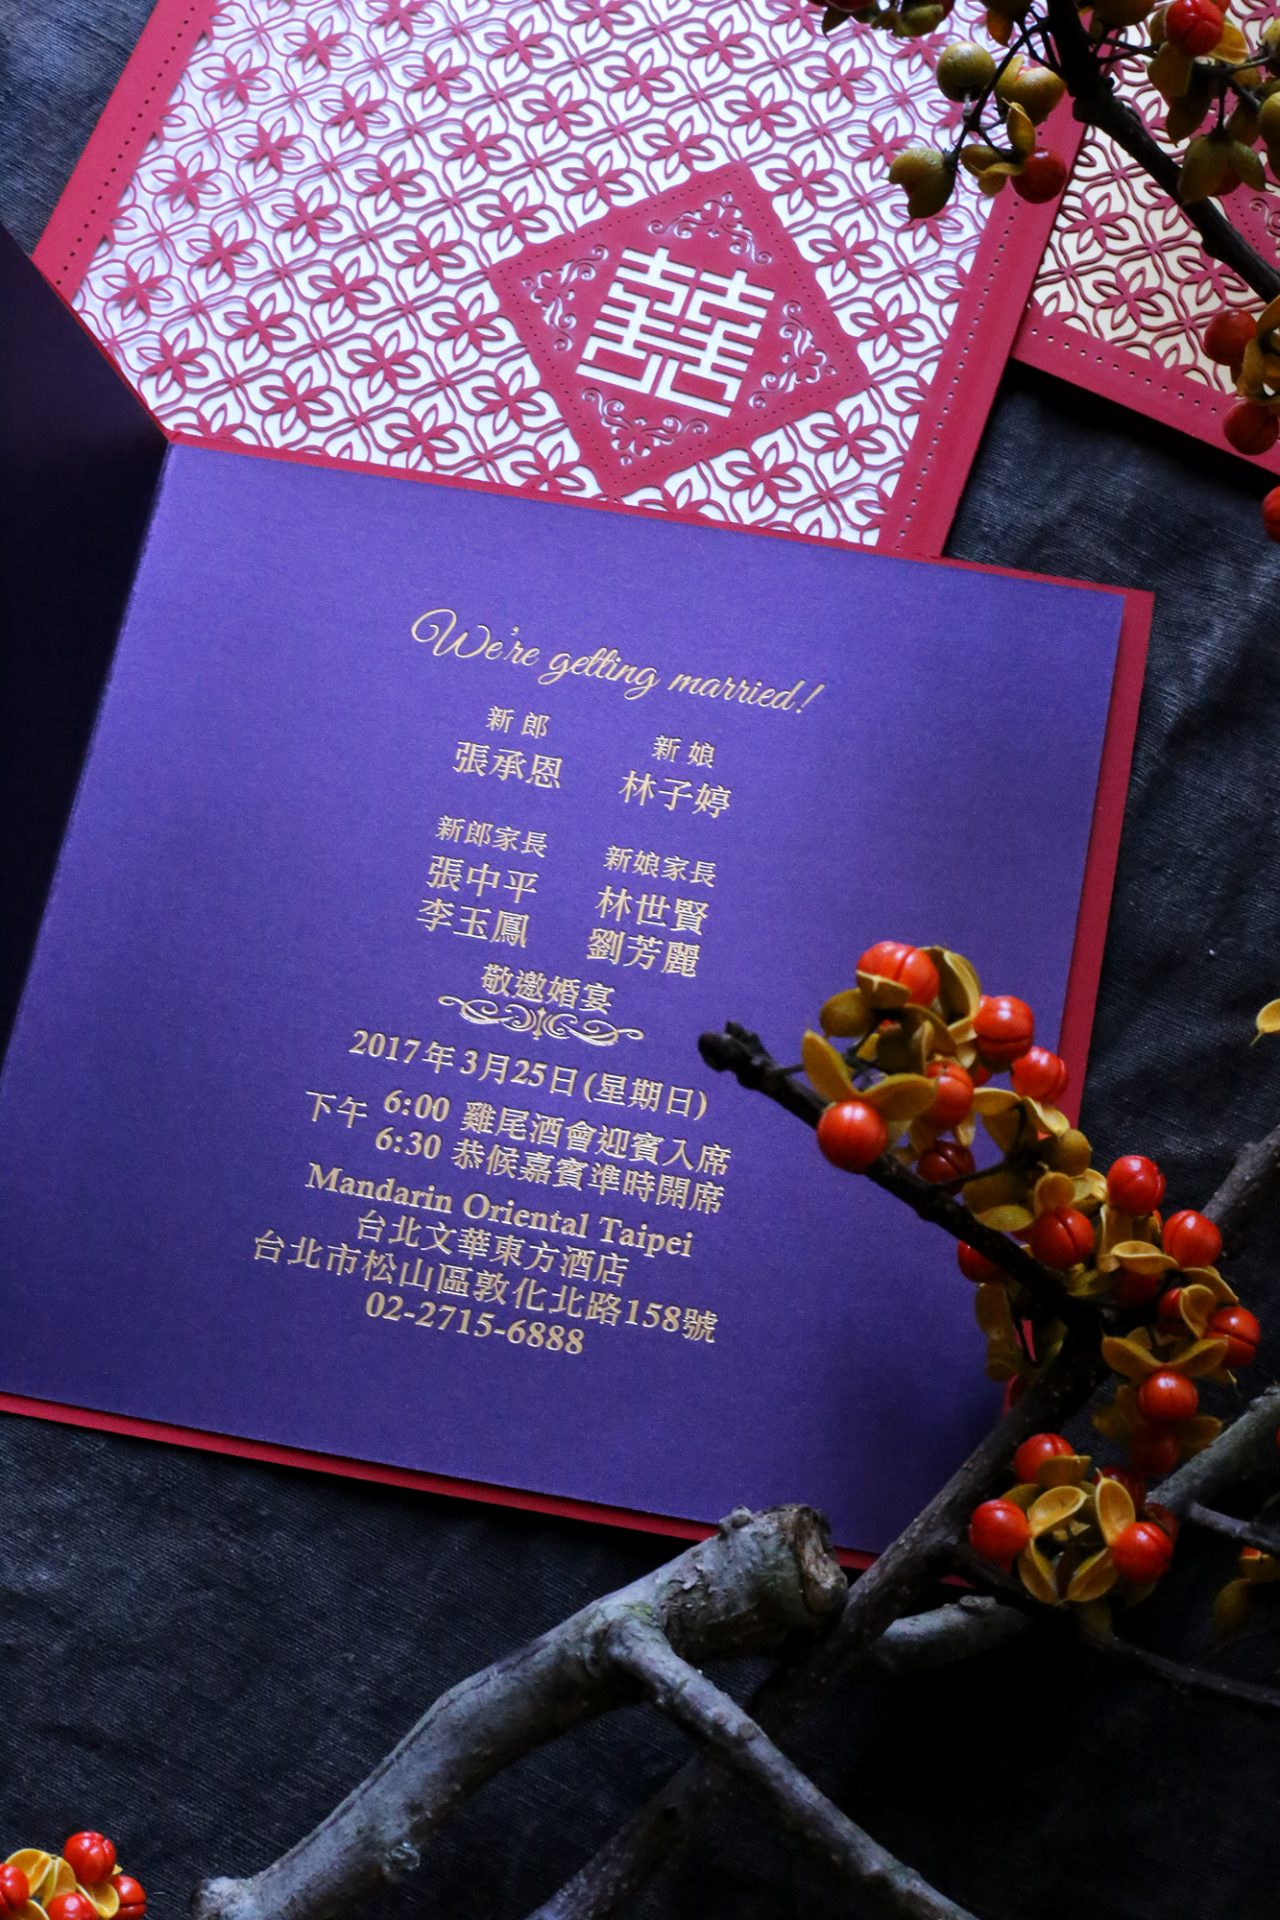 囍
We're getting married!
新郎 新娘
張承恩 林子婷
新郎家長 新娘家長
張中平 林世賢
李玉鳳 劉芳麗
敬邀婚宴
2017年3月25日(星期日)
下午 6:00 雞尾酒會迎賓入席
6:30 恭候嘉賓準時開席
Mandarin Oriental Taipei
台北文華東方酒店
台北市松山區敦化北路158號
02-2715-6888